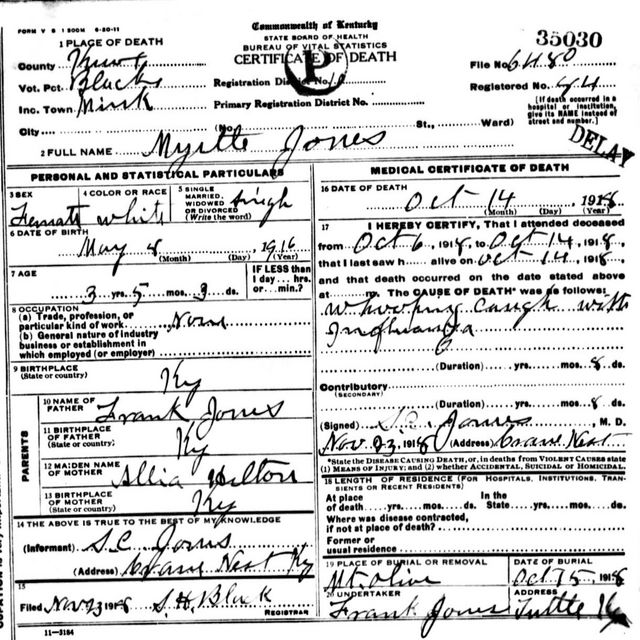 FORM V S 1 500M 6-20-11
Commonwealth of Kentucky
STATE BOARD OF HEALTH
BUREAU OF VITAL STATISTICS
CERTIFICATE OF DEATH
P
35030
1 PLACE OF DEATH
County Knox
Vot. Pct. Blacks
Inc. Town Mink
City
Registration District No.
Primary Registration District No.
(No. St., Ward)
File No. 6480
Registered No. 44
[If death occurred in a hospital or institution, give its NAME instead of street and number.]
DELAY
2 FULL NAME Myrtle Jones
PERSONAL AND STATISTICAL PARTICULARS
3 SEX Female
4 COLOR OR RACE white
5 SINGLE MARRIED, WIDOWED OR DIVORCED (Write the word) Singl
6 DATE OF BIRTH
May 8, 1916
(Month) (Day) (Year)
7 AGE
3 yrs. 5 mos. ds.
IF LESS than 1 day... hrs. or... min.?
8 OCCUPATION
(a) Trade, profession, or particular kind of work None
(b) General nature of industry business or establishment in which employed (or employer)
9 BIRTHPLACE
(State or country) Ky
PARENTS
10 NAME OF FATHER Frank Jones
11 BIRTHPLACE OF FATHER (State or country) Ky
12 MAIDEN NAME OF MOTHER Allia Hilton
13 BIRTHPLACE OF MOTHER (State or country) Ky
14 THE ABOVE IS TRUE TO THE BEST OF MY KNOWLEDGE
(Informant) S.C. Jones
(Address) Crane Nest Ky
15
Filed Nov 23 1918 S.H. Black
REGISTRAR
11-3184
MEDICAL CERTIFICATE OF DEATH
16 DATE OF DEATH
Oct 14, 1918
(Month) (Day) (Year)
17 I HEREBY CERTIFY, That I attended deceased
from Oct 6, 1918, to Oct 14, 1918,
that I last saw h alive on Oct 14, 1918,
and that death occurred on the date stated above
at m. The CAUSE OF DEATH* was as follows:
Whooping Caugh with
Influanza
(Duration) yrs. mos. 8 ds.
Contributory
(SECONDARY)
(Duration) yrs. mos. 8 ds.
(Signed) S.C. Jones, M. D.
Nov. 23, 1918 (Address) Crane Nest
*State the DISEASE CAUSING DEATH, or, in deaths from VIOLENT CAUSES state
(1) MEANS OF INJURY; and (2) whether ACCIDENTAL, SUICIDAL or HOMICIDAL.
18 LENGTH OF RESIDENCE (FOR HOSPITALS, INSTITUTIONS, TRANSIENTS OR RECENT RESIDENTS)
At place of death yrs. mos. ds. In the State yrs. mos. ds.
Where was disease contracted, if not at place of death?
Former or usual residence
19 PLACE OF BURIAL OR REMOVAL Mt Olive
DATE OF BURIAL Oct 15, 1918
20 UNDERTAKER Frank Jones
ADDRESS Tuttle Ky